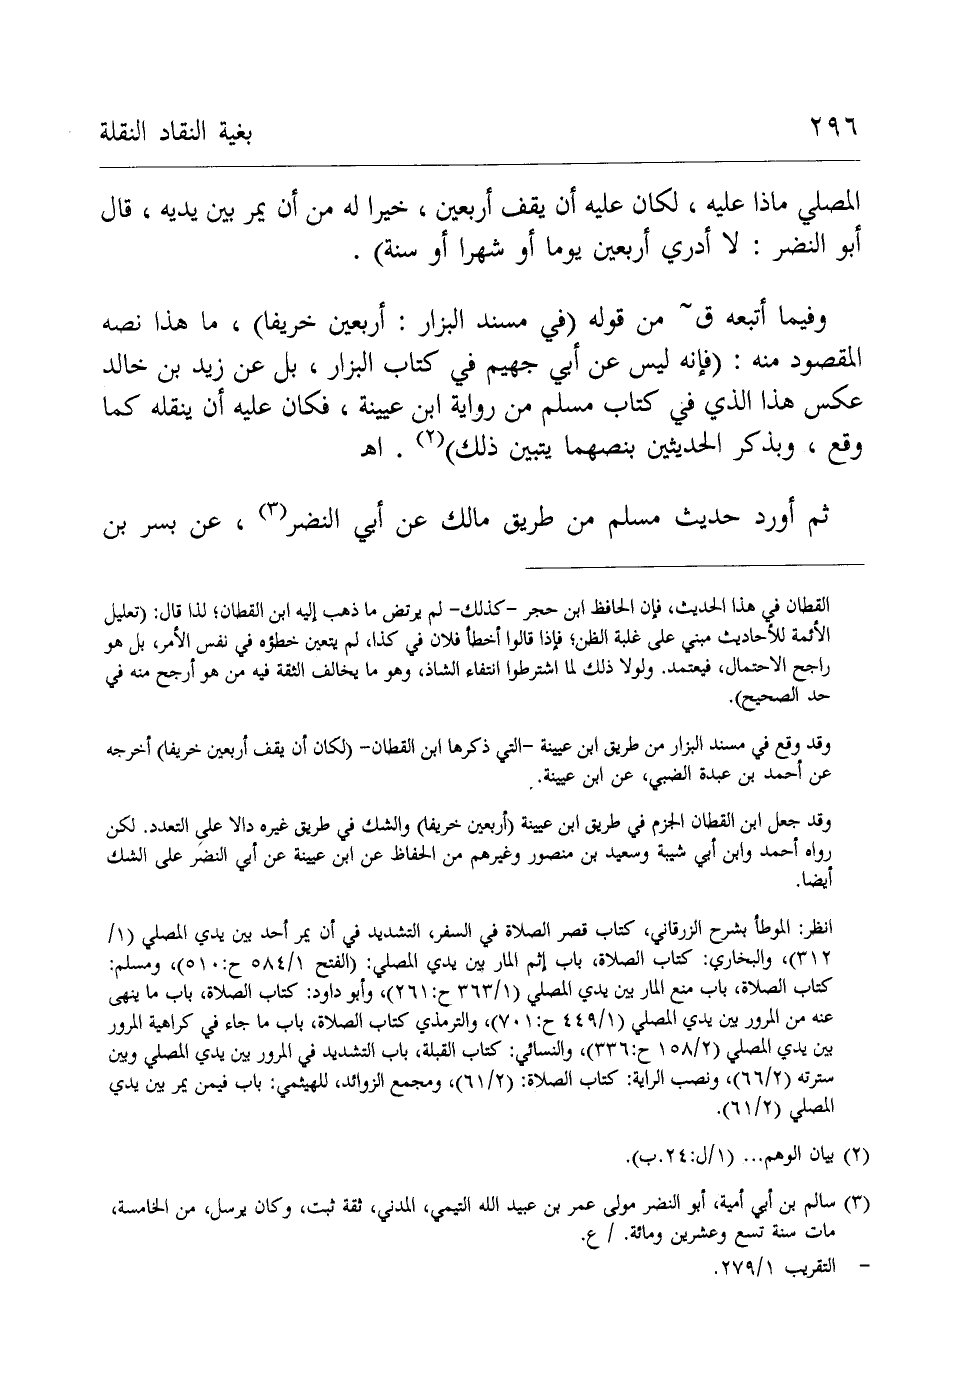 ٢٩٦ بغية النقاد النقلة
المصلي ماذا عليه ، لكان عليه أن يقف أربعين ، خيرا له من أن يمر بين يديه ، قال
أبو النضر : لا أدري أربعين يوما أو شهرا أو سنة) .
وفيما أتبعه ق~ من قوله (في مسند البزار : أربعين خريفا) ، ما هذا نصه
المقصود منه : (فإنه ليس عن أبي جهيم في كتاب البزار ، بل عن زيد بن خالد
عكس هذا الذي في كتاب مسلم من رواية ابن عيينة ، فكان عليه أن ينقله كما
وقع ، وبذكر الحديثين بنصهما يتبين ذلك)(٢) . اهـ
ثم أورد حديث مسلم من طريق مالك عن أبي النضر(٣) ، عن بسر بن
القطان في هذا الحديث، فإن الحافظ ابن حجر -كذلك- لم يرتض ما ذهب إليه ابن القطان؛ لذا قال: (تعليل
الأئمة للأحاديث مبني على غلبة الظن؛ فإذا قالوا أخطأ فلان في كذا، لم يتعين خطؤه في نفس الأمر، بل هو
راجح الاحتمال، فيعتمد. ولولا ذلك لما اشترطوا انتفاء الشاذ، وهو ما يخالف الثقة فيه من هو أرجح منه في
حد الصحيح).
وقد وقع في مسند البزار من طريق ابن عيينة -التي ذكرها ابن القطان- (لكان أن يقف أربعين خريفا) أخرجه
عن أحمد بن عبدة الضبي، عن ابن عيينة.
وقد جعل ابن القطان الجزم في طريق ابن عيينة (أربعين خريفا) والشك في طريق غيره دالا على التعدد. لكن
رواه أحمد وابن أبي شيبة وسعيد بن منصور وغيرهم من الحفاظ عن ابن عيينة عن أبي النضر على الشك
أيضا.
انظر: الموطأ بشرح الزرقاني، كتاب قصر الصلاة في السفر، التشديد في أن يمر أحد بين يدي المصلي (١/
٣١٢)، والبخاري: كتاب الصلاة، باب إثم المار بين يدي المصلي: (الفتح ٥٨٤/١ ح:٥١٠)، ومسلم:
كتاب الصلاة، باب منع المار بين يدي المصلي (٣٦٣/١ ح:٢٦١)، وأبو داود: كتاب الصلاة، باب ما ينهى
عنه من المرور بين يدي المصلي (٤٤٩/١ ح:٧٠١)، والترمذي كتاب الصلاة، باب ما جاء في كراهية المرور
بين يدي المصلي (١٥٨/٢ ح:٣٣٦)، والنسائي: كتاب القبلة، باب التشديد في المرور بين يدي المصلي وبين
سترته (٦٦/٢)، ونصب الراية: كتاب الصلاة: (٦١/٢)، ومجمع الزوائد، للهيثمي: باب فيمن يمر بين يدي
المصلي (٦١/٢).
(٢) بيان الوهم... (١/ل:٢٤.ب).
(٣) سالم بن أبي أمية، أبو النضر مولى عمر بن عبيد الله التيمي، المدني، ثقة ثبت، وكان يرسل، من الخامسة،
مات سنة تسع وعشرين ومائة. / ع.
- التقريب ٢٧٩/١.